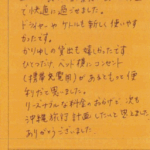 て快適に過ごせました。
ドライヤーやケトルも新しく使いやす
かったです。
かりゆしの貸出も嬉しかったです
ひとつだけ、ベット横にコンセント
(携帯充電用)があるともっと便
利だと思いました。
リーズナブルな料金のおかげで次も
沖縄旅行計画したいと思えました
ありがとうございました